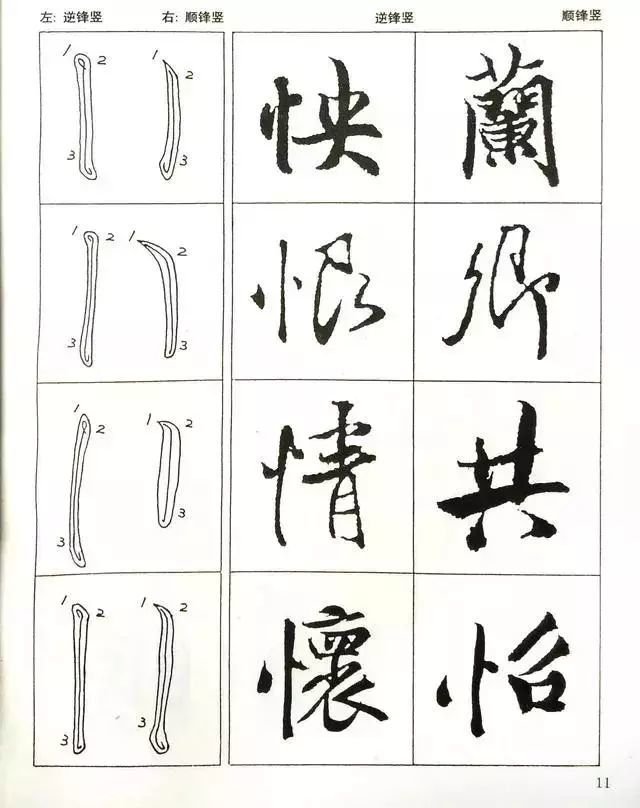 左: 逆锋竖 右: 顺锋竖 逆锋竖 顺锋竖
1 2 3 1 2 3 怏 蘭
1 2 3 1 2 3 恨 卿
1 2 3 1 2 3 情 共
1 2 3 1 2 3 懷 怡
11